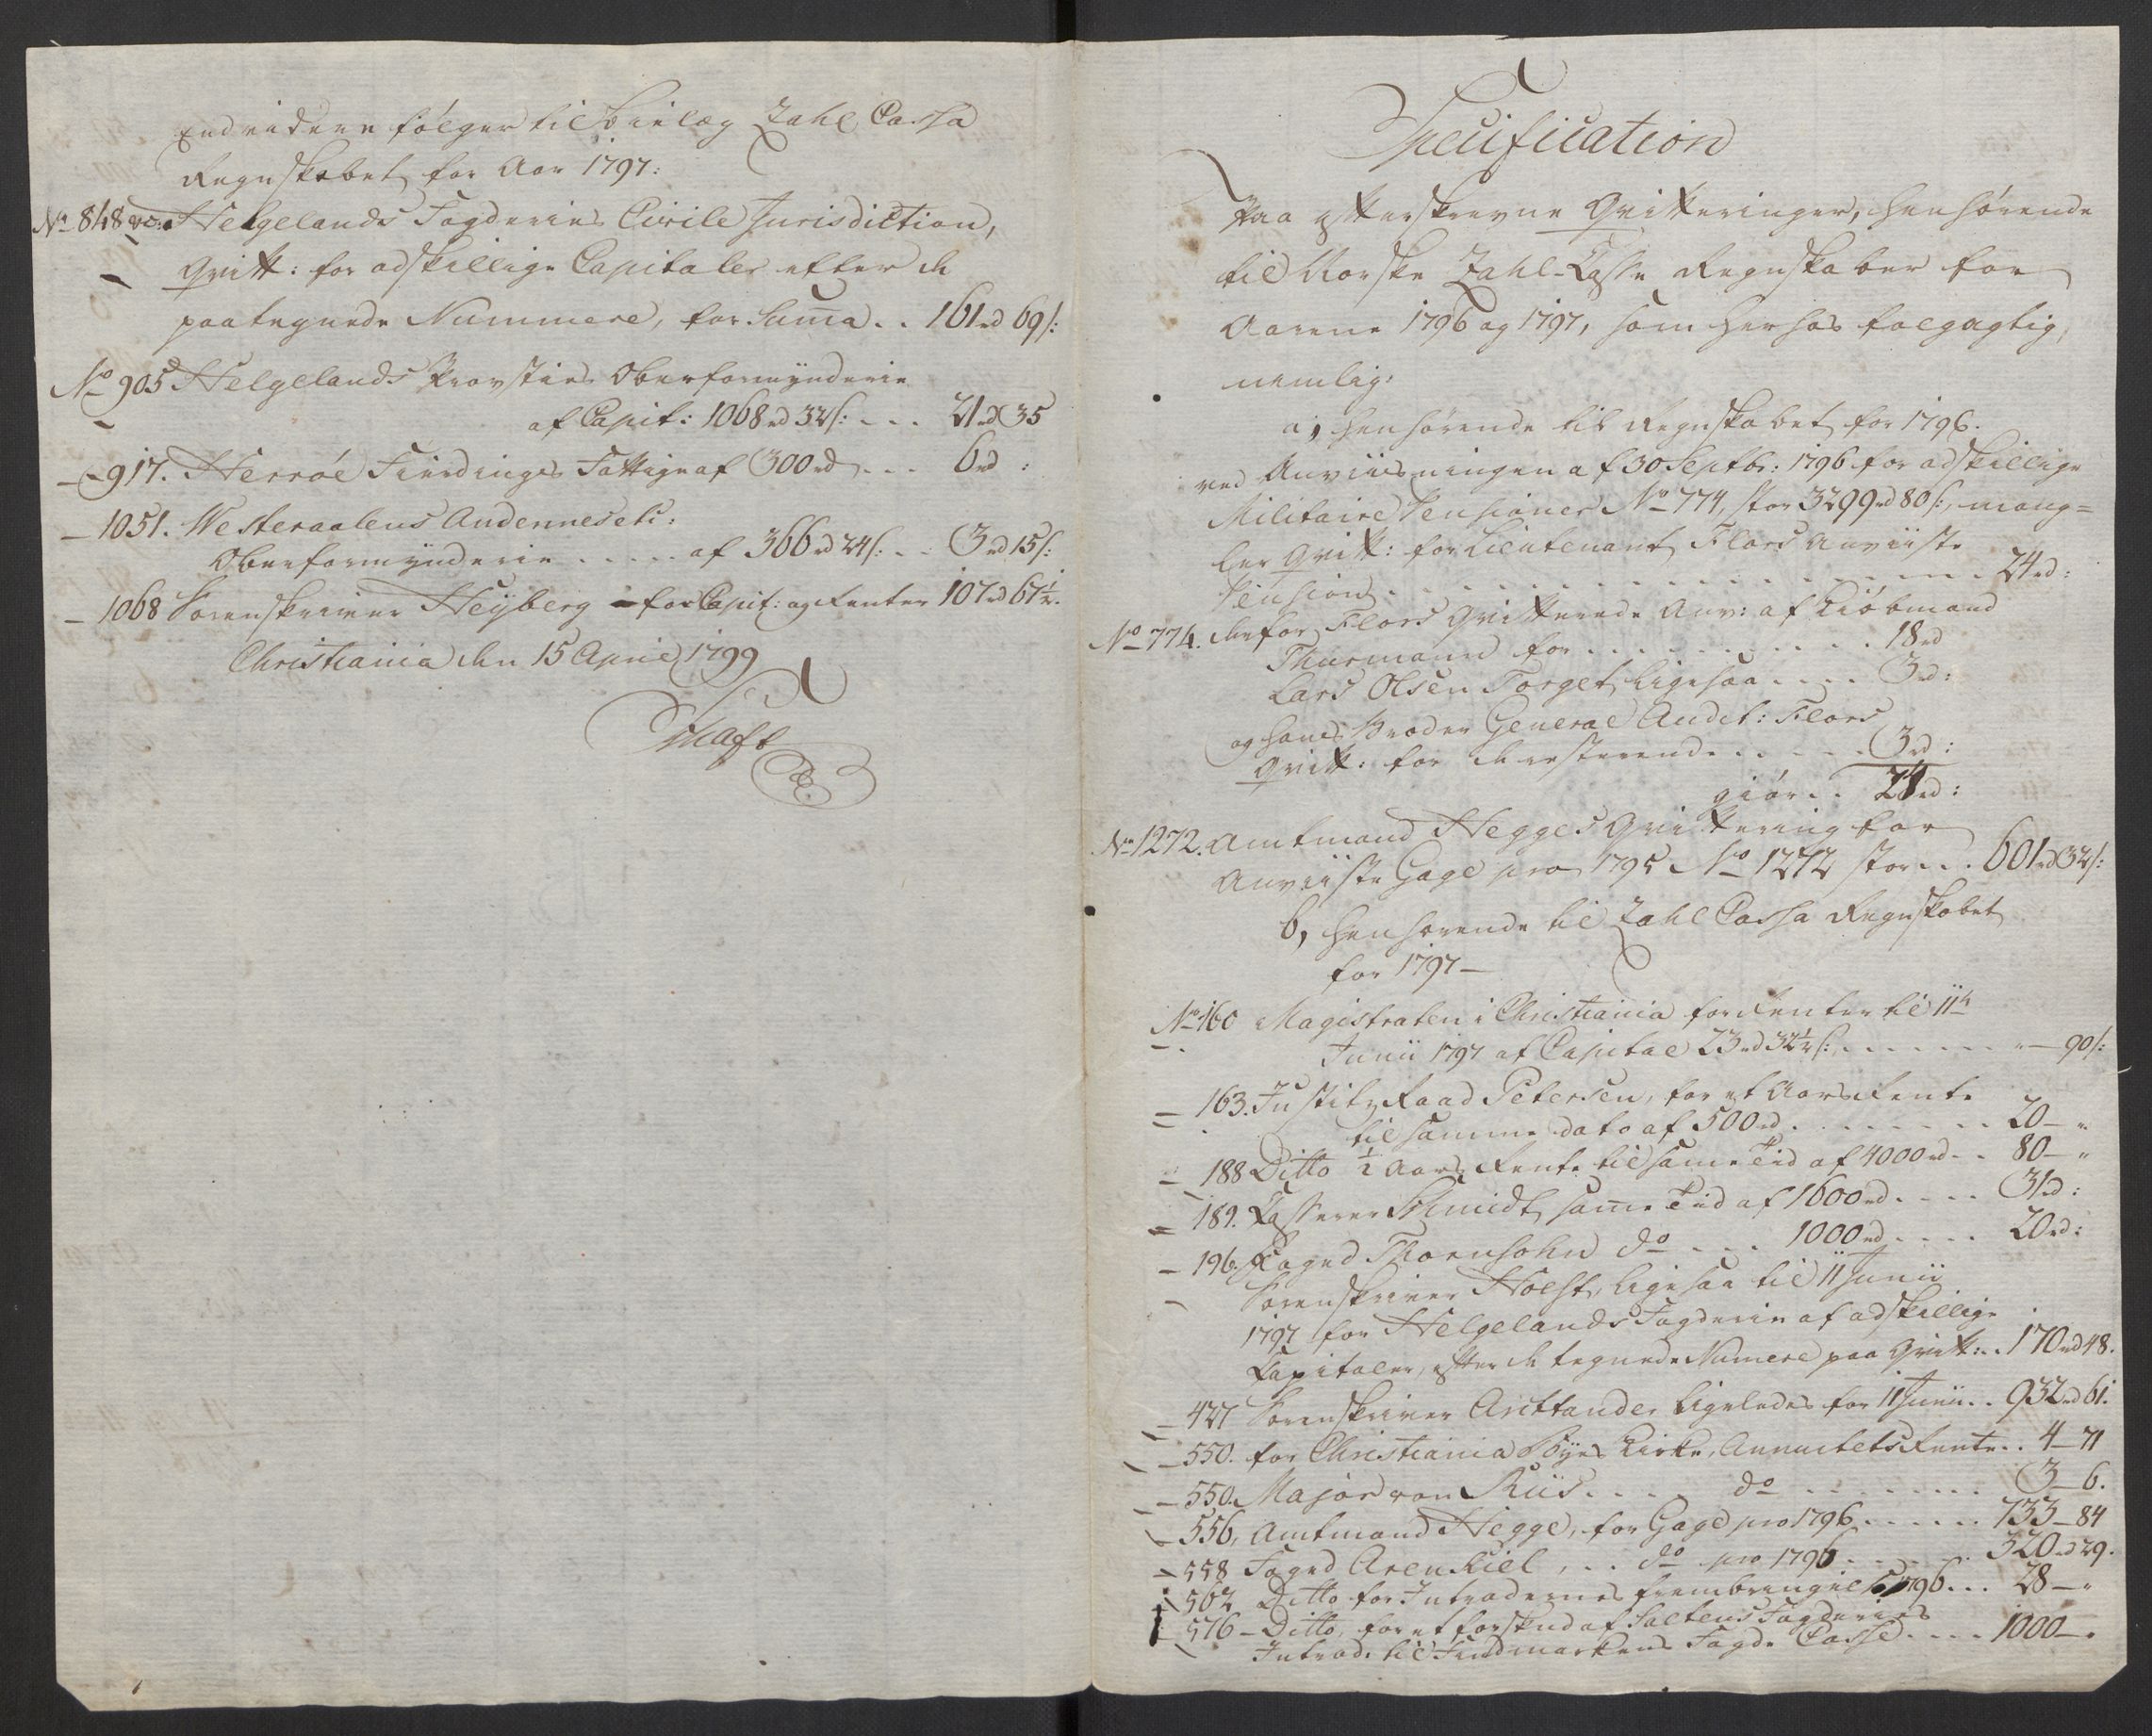 Endvidere følger til Bielag Zahl Cassa
Regnskabet for Aar 1797:
No 848 Helgelands Fogderies Civile Jurisdiction,
Qvitt: for adskillige Capitaler efter de
paategnede Nummere, for Suma . . 161 rd 69 s:
No 905 Helgelands Provsties Oberformynderie
af Capit: 1068 rd 32 s: - - . 21 rd 35
- 917. Herrøe Fierdings Fattige af 300 rd . . . 6 rd :
- 1051. Westeraalens Andennes etc:
Oberformynderie . . . . af 366 rd 24 s: . . 3 rd 15 s:
- 1068 Sorenskriver Heyberg - for Capit: og Renter 107 rd 67 1/2.
Christiania den 15 April 1799
Schaft
Specification
Paa efterskrevne Qvitteringer, henhørende
til Norske Zahl-Casse Regnskaber for
Aarene 1796 og 1797, som herhos følgagtig,
nemlig:
a, henhørende til Regnskabet for 1796.
ved Anviisningen af 30 Septbr: 1796 for adskillige
Militaire Pensioner No 774, stor 3299 rd 80 s:, mang=
ler Qvitt: for Lieutenant Flors anviiste
Pension . . . . . . . . . . 24 rd:
No 774. derfor Flors Qvitterede Anv: af Kiøbmand
Thurmann for . . . . . . . . 18 rd
Lars Olsen Torget, ligesaa . . . . 3 rd:
og hans Broder General Audit: Flors
Qvitt: for de resterende . . . . . 3 rd:
giør . . 24 rd:
No 1272. Amtmand Hegges Qvittering for
anviiste Gage pro 1795 No 1272 stor . . . 601 rd 32 s:
b, henhørende til Zahl Cassa Regnskabet
for 1797 -
No 160 Magistraten i Christiania for Renter til 11te
Junii 1797 af Capital 23 rd 32 1/2 s: . . . . . . . " - 90 s:
- 163. Justitz Raad Petersen, for et Aars Rente
til samme dato af 500 rd . . . . . . . . 20 - "
- 188 Ditto 1/2 Aars Rente til same Tid af 4000 rd . . 80 - "
- 189. Casserer Schmidt, same Tid af 1600 rd . . . . 31 rd:
- 196. Foged Thornsohn do . . . 1000 rd . . . . 20 rd:
Sorenskriver Holst, ligesaa til 11 Junii
1797 for Helgelands Fogderie af adskillige
Capitaler, efter de tegnede Numere paa Qvitt: . . 170 rd 48.
- 427 Sorenskriver Arctander ligeledes for 11 Junii . . 932 rd 61.
- 550. for Christiania Byes Kirke, Annuitets Rente . . 4 - 71
- 550. Major von Riis . . . . do . . . . . . . . . 3 - 6.
- 556, Amtmand Hegge, for Gage pro 1796 . . . . . . 733 - 84
- 558 Foged Arenkiel, . . do pro 1796 . . . . . . 320 rd 29.
- 562 Ditto for Intradernes frembringelse 1796 . . . 28 - "
- 576 - Ditto, for et forskud af Saltens Fogderies
Intrad: til Findmarkens Fogde Casse . . . . 1000 - "